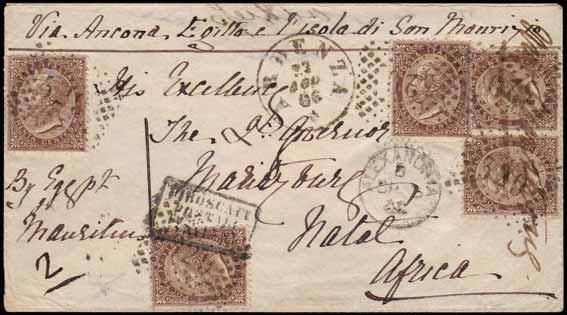 Via Ancona, Egitto e l'isola di San Maurizio
His Excellency
The Lt. Governor
Maritzburg
Natal
Africa
By Egypt
Mauritius
2
ARDENZA
23
AGO
66
ALEXANDRIA
5
PIROSCAFI
POSTALI